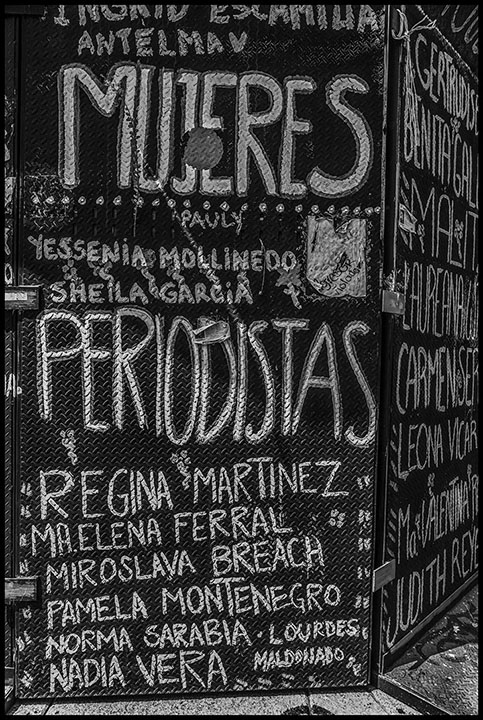 INGRID ESCAMILLA
ANTELMAV
MUJERES
PAULY
YESSENIA MOLLINEDO
SHEILA GARCIA
PERIODISTAS
REGINA MARTINEZ
MA.ELENA FERRAL
MIROSLAVA BREACH
PAMELA MONTENEGRO
NORMA SARABIA · LOURDES
MALDONADO
NADIA VERA
GERTRUDIS
BENITA GAL
MALIT
LAUREANA
CARMEN SER
LEONA VICAR
Ma. VALENTINA
JUDITH REY